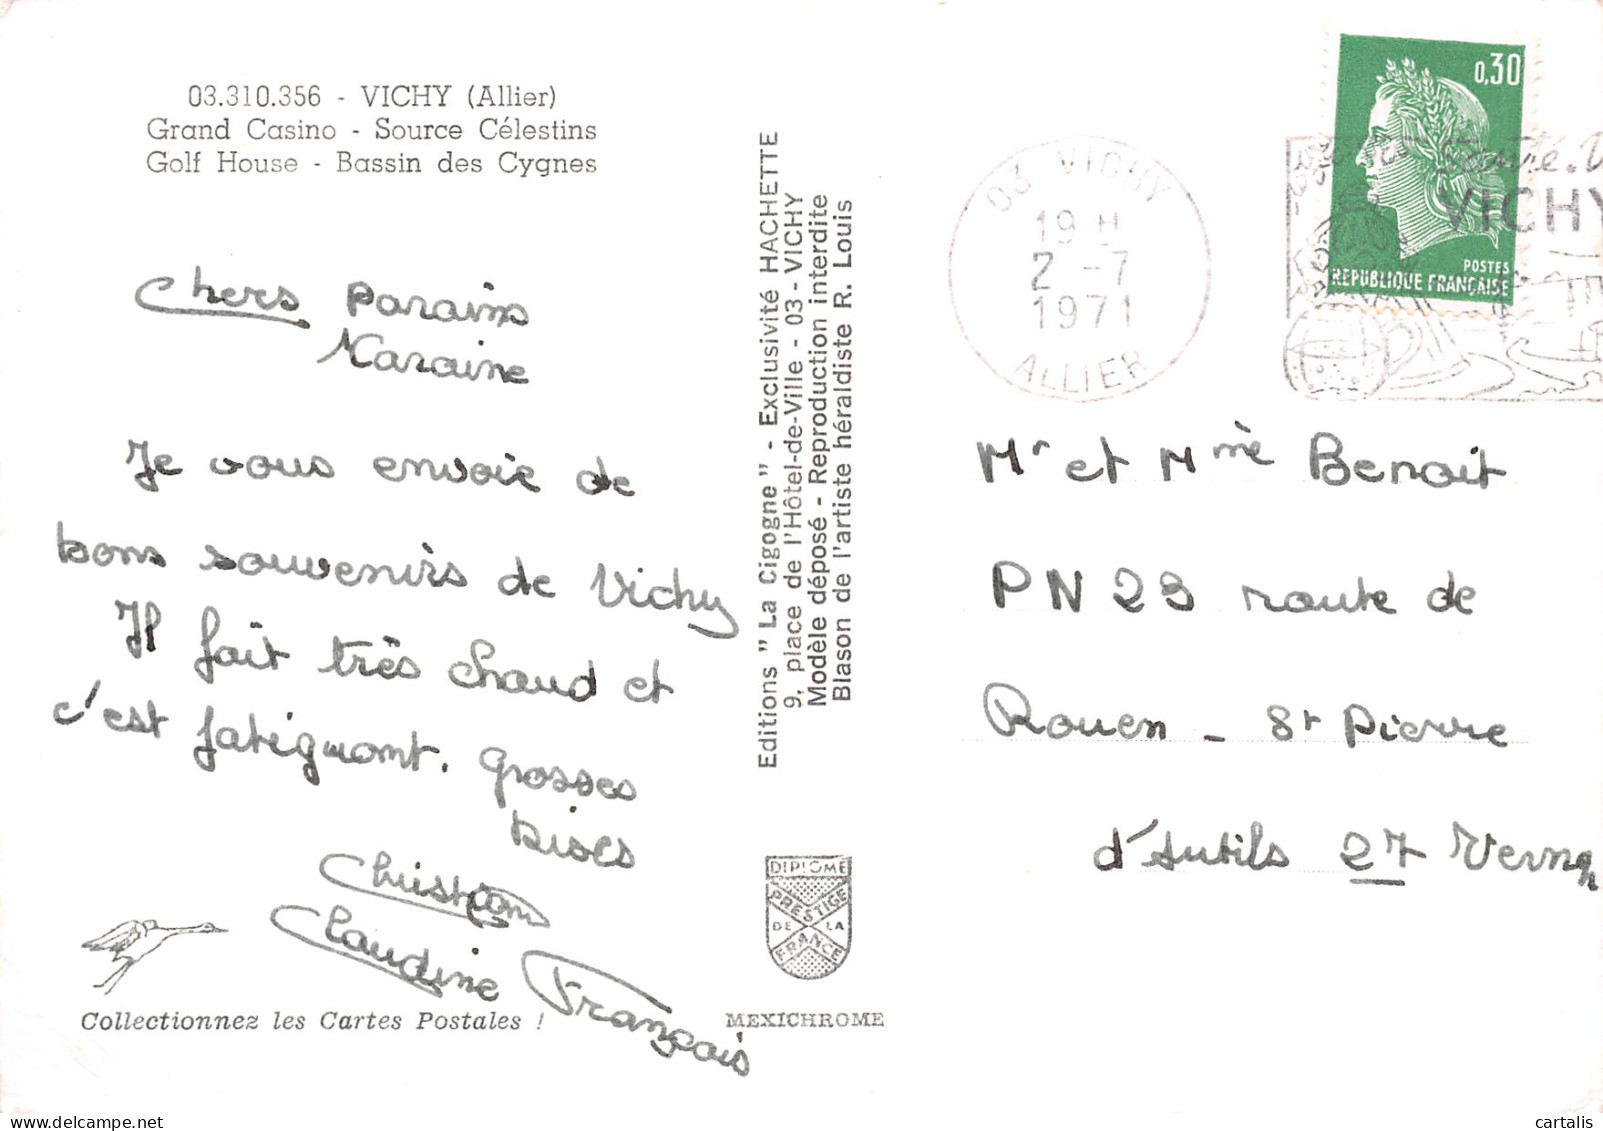 03.310.356 - VICHY (Allier)
Grand Casino - Source Célestins
Golf House - Bassin des Cygnes
Chers Parains
Maraine
Je vous envoie de
bons souvenirs de Vichy
Il fait très chaud et
c'est fatiguant. Grosses
bises
Christian
Claudine
Français
Collectionnez les Cartes Postales !
Editions " La Cigogne " - Exclusivité HACHETTE
9, place de l'Hôtel-de-Ville - 03 - VICHY
Modèle déposé - Reproduction interdite
Blason de l'artiste héraldiste R. Louis
DIPLOME
PRESTIGE
DE LA
FRANCE
MEXICHROME
0,30
POSTES
REPUBLIQUE FRANÇAISE
03 VICHY
19 H
2 -7
1971
ALLIER
VICHY
Mr et Mme Benoit
PN 23 route de
Rouen - St Pierre
d'Autils 27 Vernon
cartalis